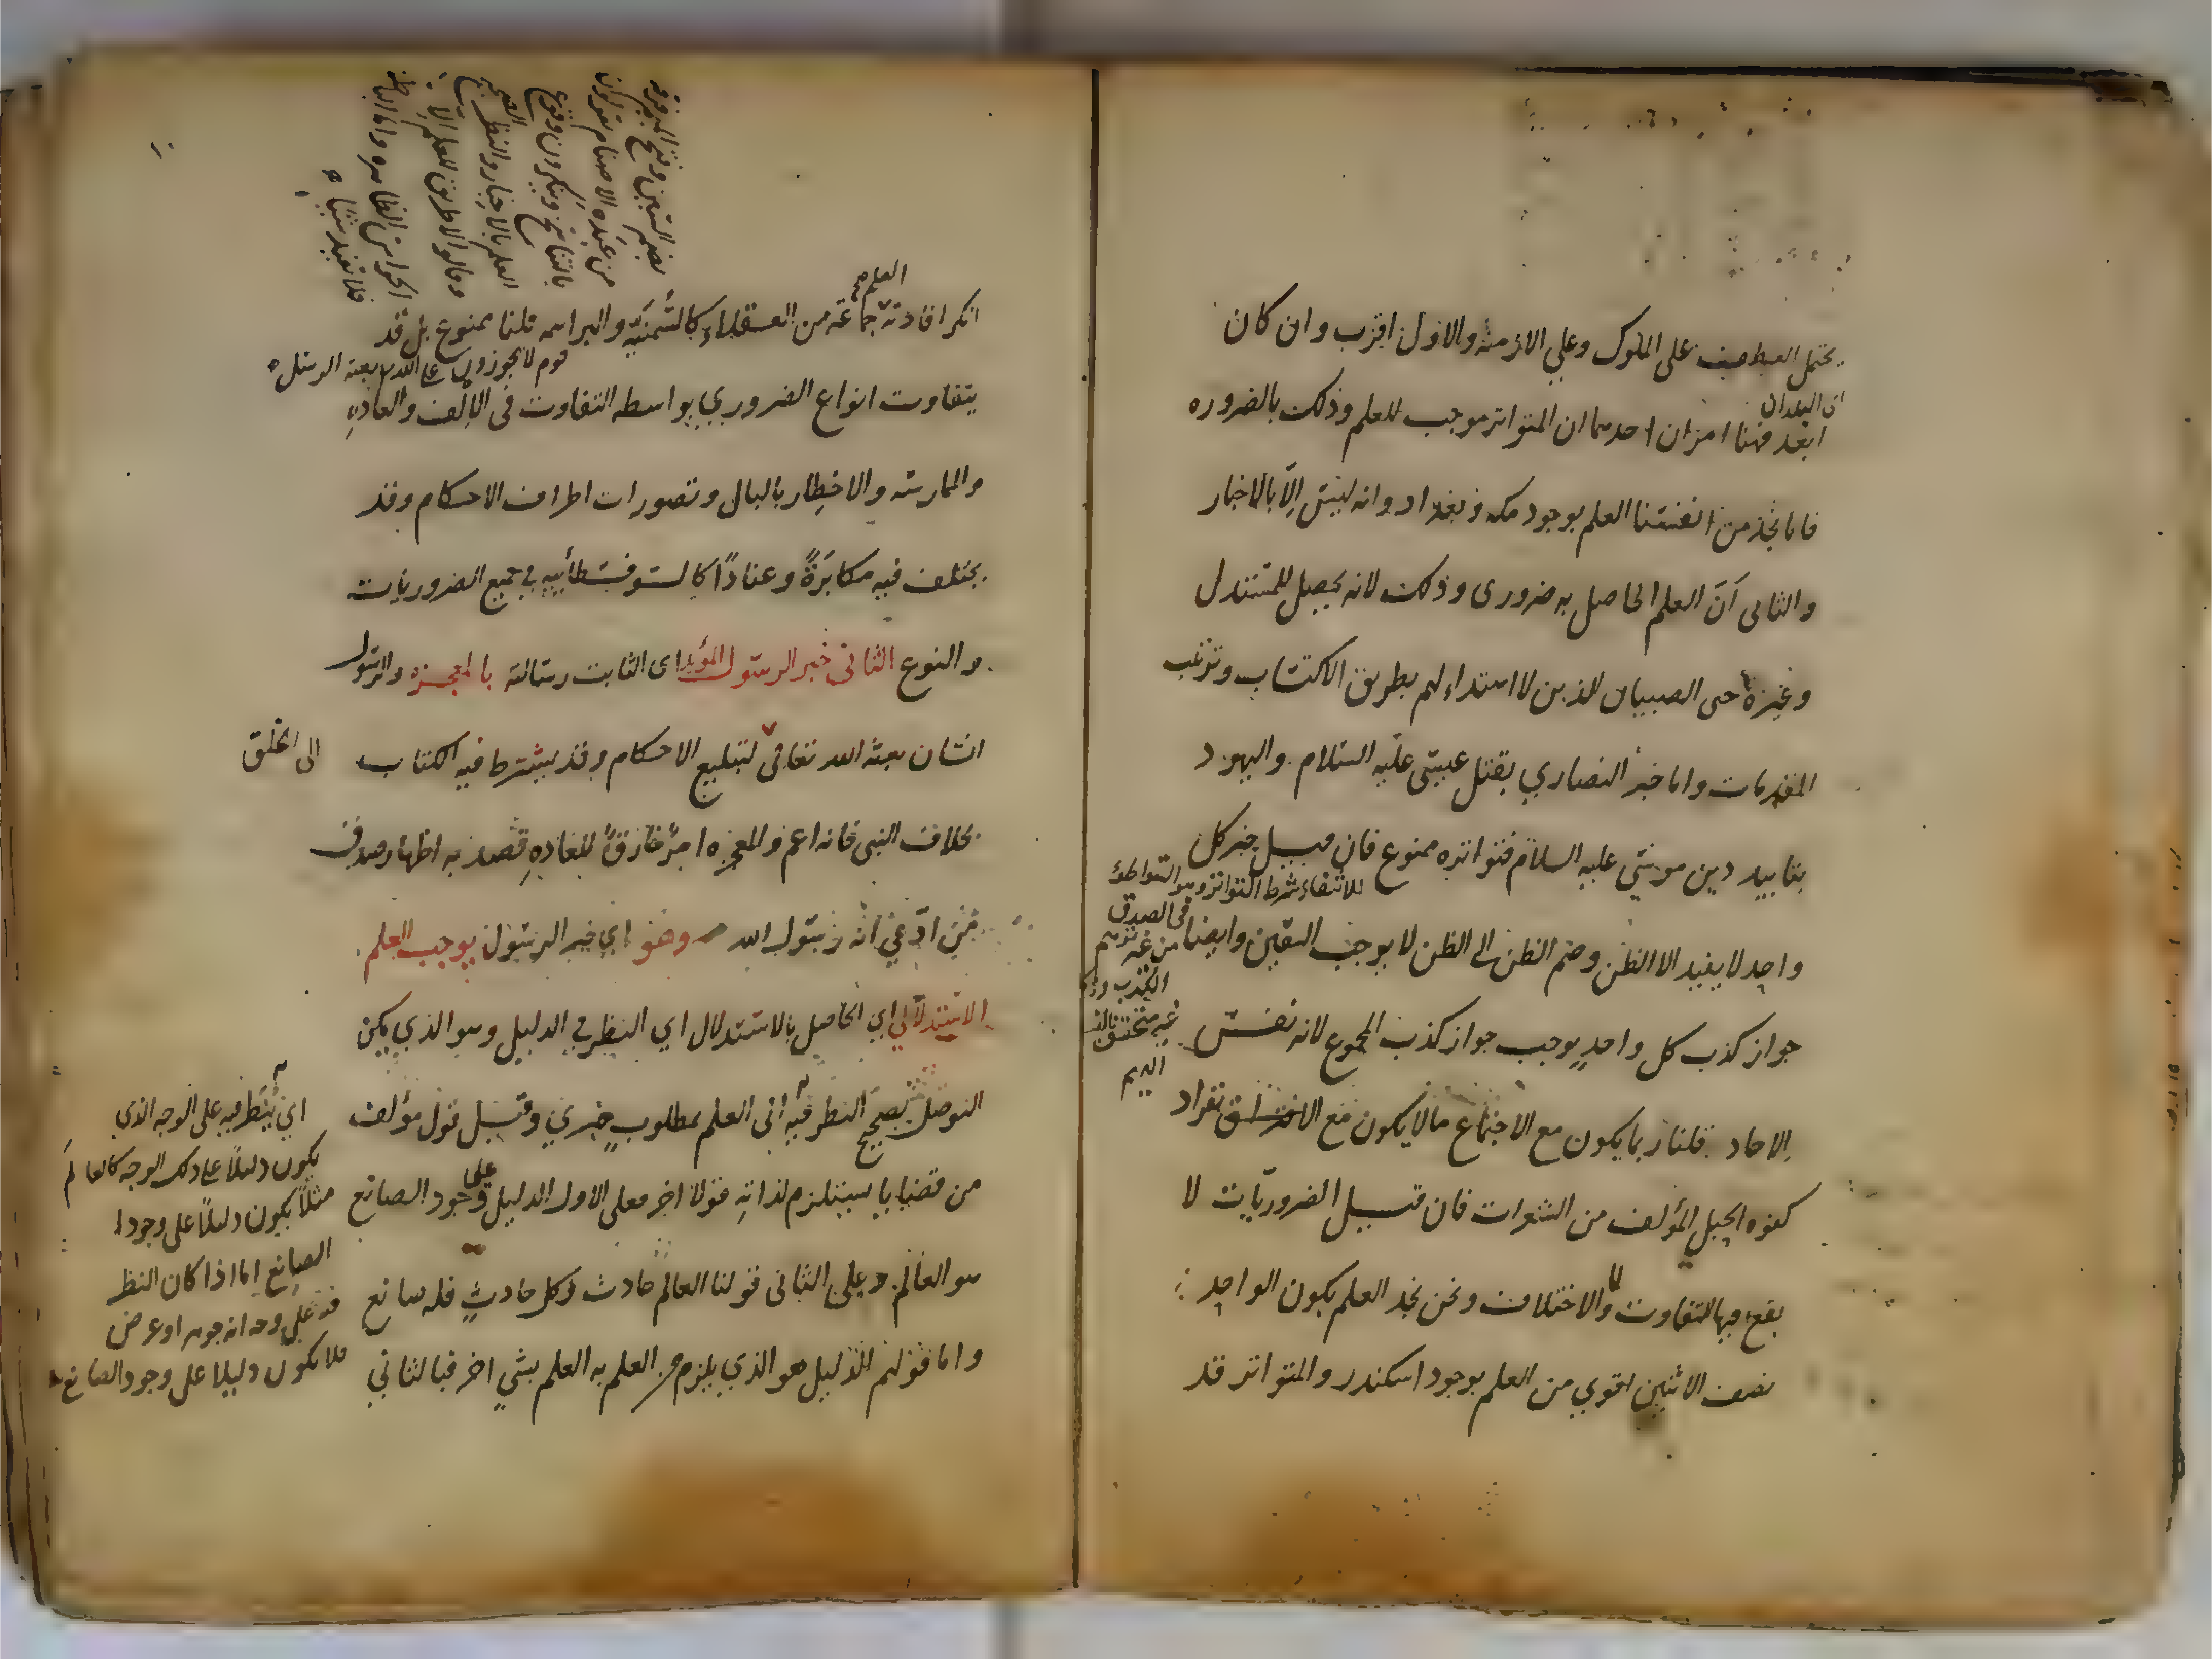 يحتمل العطف على الملوك وعلي الازمنة والاول اقرب وان كان
اي البلدان
ابعد فهنا امران احدهما ان المتواتر موجب للعلم وذلك بالضروره
فانا نجد من انفسنا العلم بوجود مكه وبغداد وانه ليس الّا بالاخبار
والثانى اَنّ العلم الحاصل به ضرورى وذلك لانه يحصل للمستدل
وغيره حتى الصبيان الذين لا اهتداء لهم بطريق الاكتساب وترتيب
المقدمات واما خبر النصاري بقتل عيسى عليه السلام واليهود
بتابيد دين موسى عليه السلام فتواتره ممنوع فان قيل خبر كل
للانتفاء شرط التواتر وهو التواطئ
فى الصدق
واحد لا يفيد الا الظن وضم الظن الى الظن لا يوجب اليقين وايضا
من غير توهم
الكذب
جواز كذب كل واحدٍ يوجب جواز كذب المجموع لانه نفس
غير متحقق
الاحاد قلنا ربما يكون مع الاجتماع ما لا يكون مع الانفراد
كقوه الحبل المؤلف من الشعرات فان قيل الضروريّات لا
يقع فيها التفاوت ولا الاختلاف ونحن نجد العلم بكون الواحد
نصف الاثنين اقوي من العلم بوجود اسكندر والمتواتر قد
بضم السين وفتح الميم فرقه
من عبده الاصنام يقولون
بالتناسخ وينكرون وقوع
العلم بالاخبار والنظر الصحيح
وقالوا لا طريق للعلم الّا
الحواس الظاهره واما الباطنه
فلا تفيد شيئا
العلم
انكر افادته جماعة من العقلاء كالسُّمَنيّه والبراهمه قلنا ممنوع بل قد
قوم لا يجوزون على الله بعثه الرسل
يتفاوت انواع الضروري بواسطه التفاوت فى الإلف والعادهِ
والممارسه والاخِطار بالبال وتصورات اطراف الاحكام وقد
يختلف فيه مكابَرَةً وعنادًا كالسوفسطائيه في جميع الضروريات
والنوع الثانى خبر الرسول المؤيد اى الثابت رسالته بالمعجزه والرسول
انسان بعثه الله تعالى لتبليغ الاحكام وقد يشترط فيه الكتاب
الى الخلق
بخلاف النبى فانه اعم والمعجزه امرٌ خارقٌ للعادهِ قُصد به اظهار صدق
مَن ادّعي انّه رسول الله وهو اي خبر الرسول يوجب العلم
الاستدلالي اي الحاصل بالاستدلال اي النظر في الدليل وهو الذي يمكن
التوصل بصحيح النظر فيه الى العلم بمطلوبٍ خبري وقيل قول مؤلف
من قضايا يستلزم لذاتهِ قولا اخر فعلى الاول الدليل على وجود الصانع
هو العالَم وعلى الثانى قولنا العالَم حادث وكل حادثٍ فله صانع
واما قولهم الدليل هو الذي يلزم من العلم به العلم بشيٍ اخر فبالثاني
اي يُنظر فيه على الوجه الذي
يكون دليلًا على ذلك الوجه كالعالَم
مثلًا يكون دليلًا على وجود
الصانع اما اذا كان النظر
فيه على وجه انه جوهر او عرض
فلا يكون دليلا على وجود الصانع